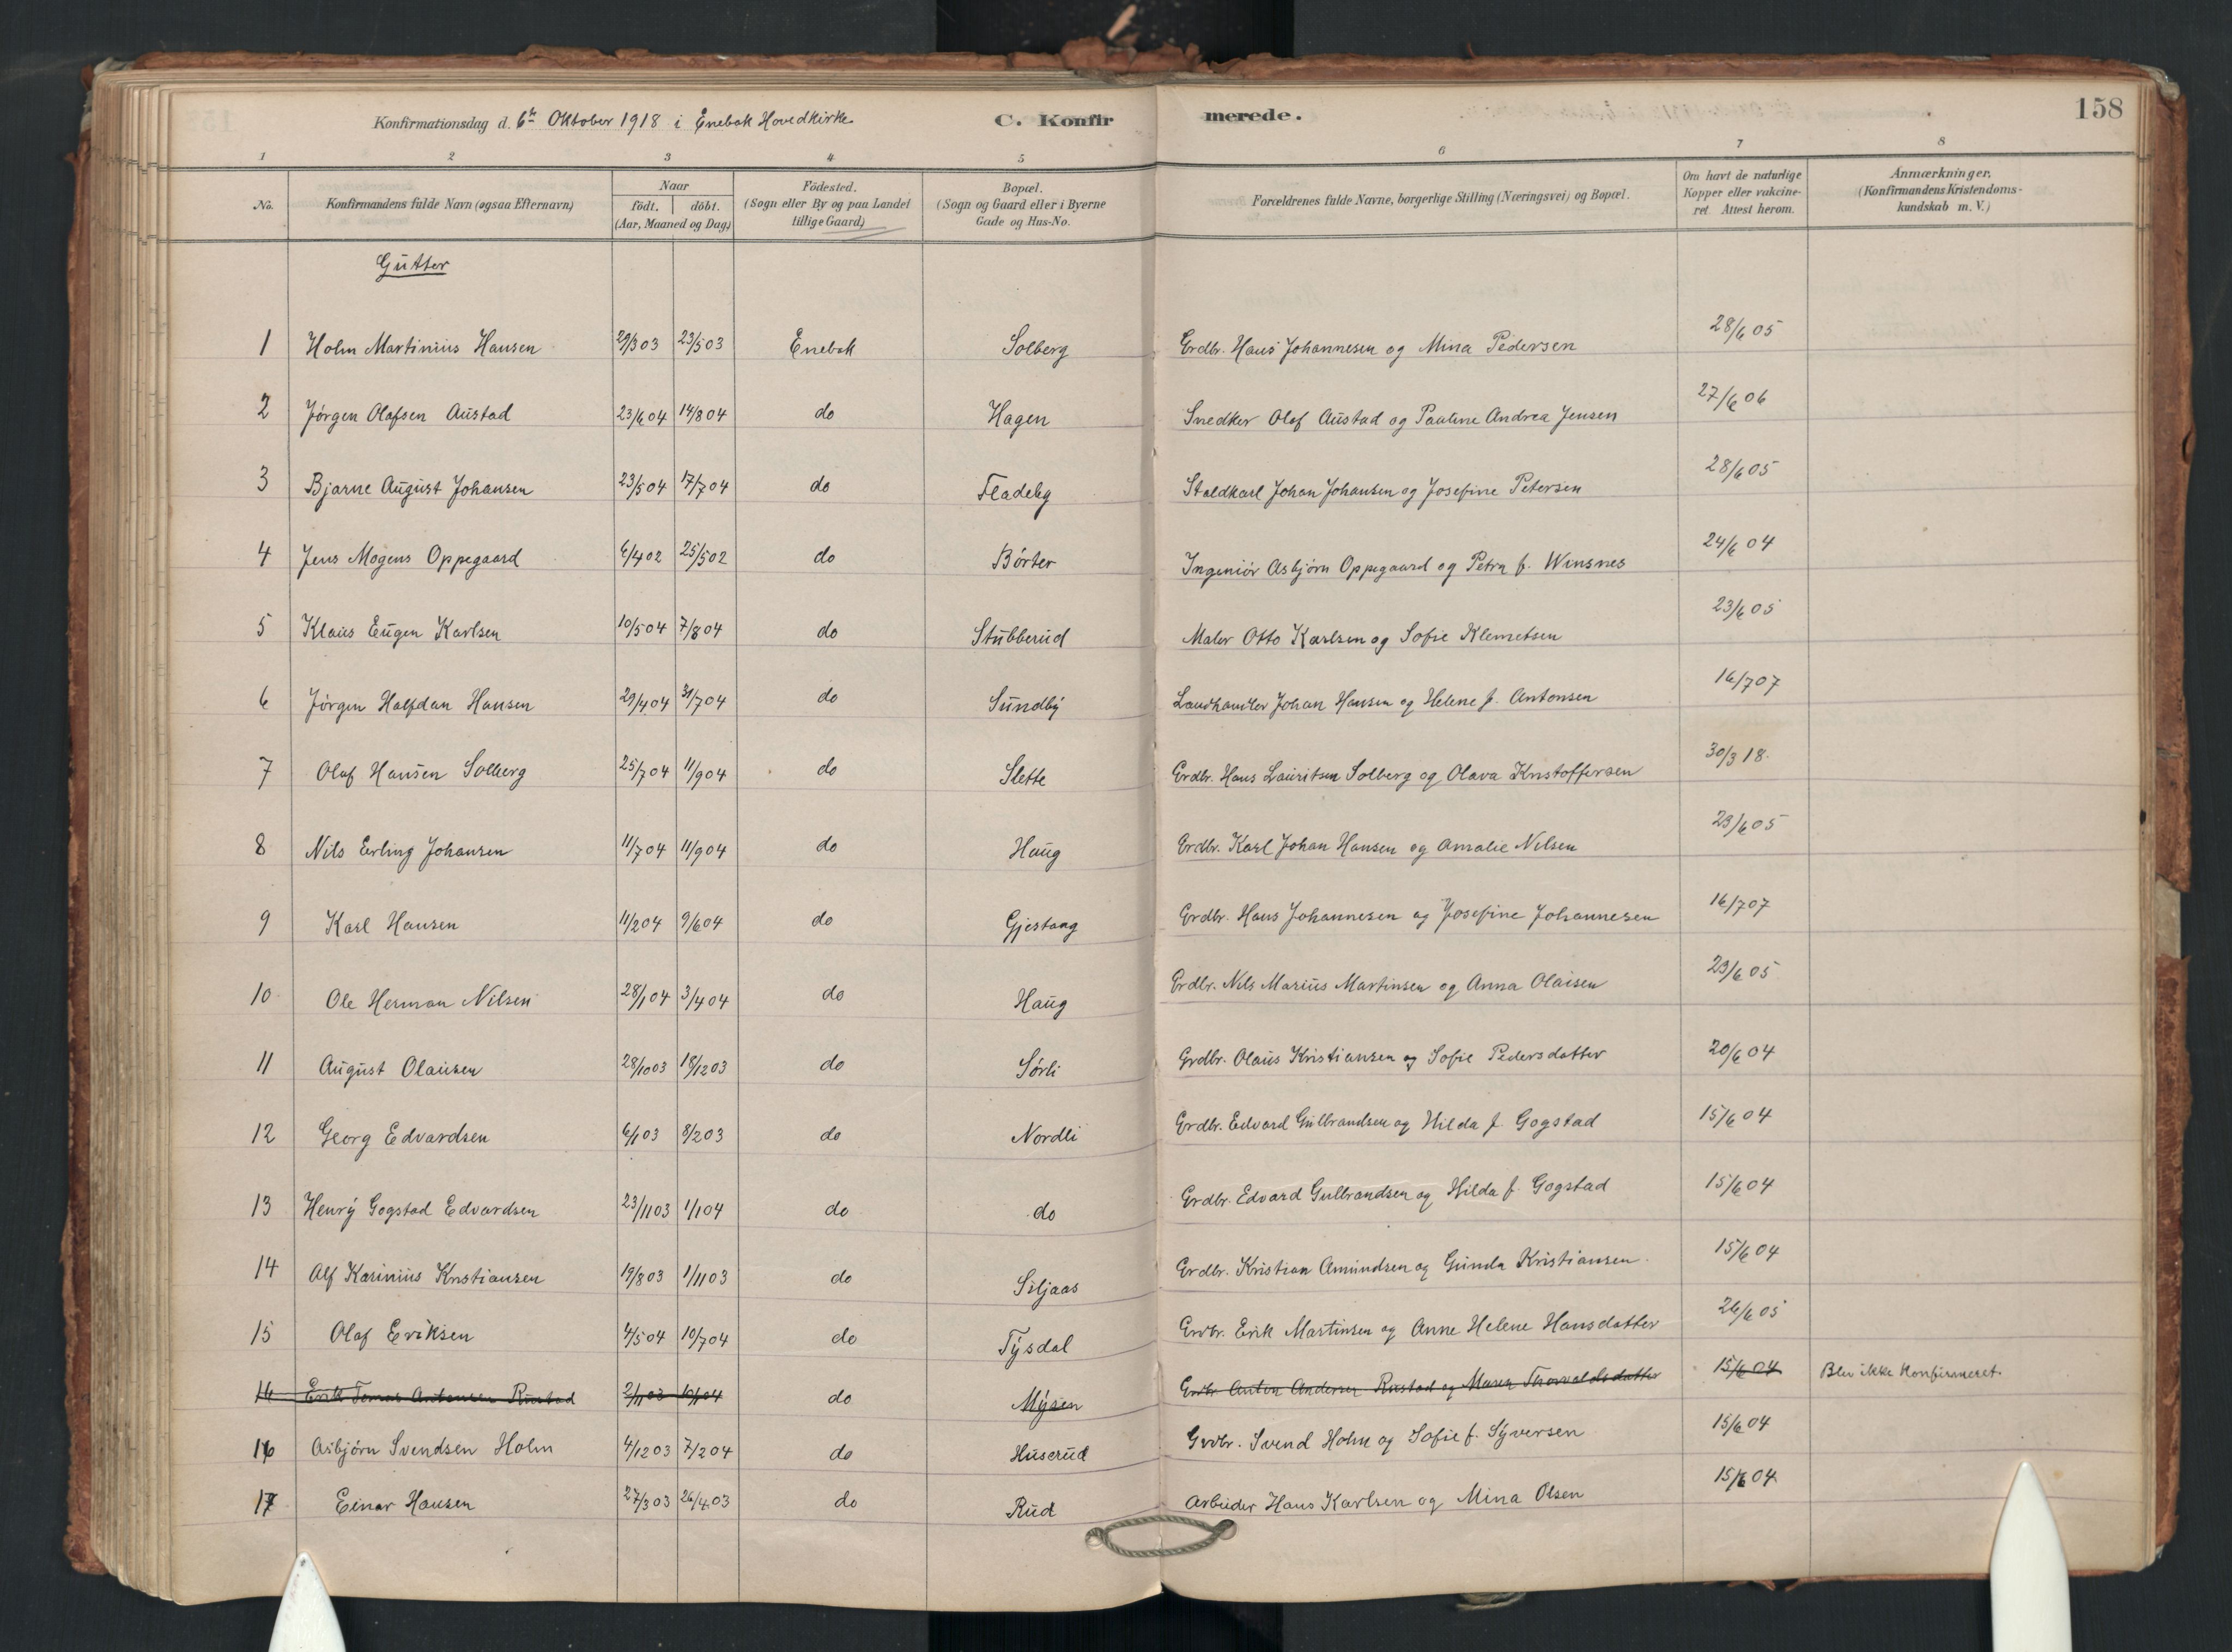 Konfirmationsdag d. 6te Oktober 1918 i Enebak Hovedkirke C. Konfirmerede. 158
1 2 3 4 5 6 7 8
No. Konfirmandens fulde Navn (ogsaa Efternavn) Naar födt. döbt. (Aar, Maaned og Dag) Födested. (Sogn eller By og paa Landet tillige Gaard) Bopæl. (Sogn og Gaard eller i Byerne Gade og Hus-No. Forældrenes fulde Navne, borgerlige Stilling (Næringsvei) og Bopæl. Om havt de naturlige Kopper eller vakcineret. Attest herom. Anmærkninger. (Konfirmandens Kristendomskundskab m. V.)
Gutter
1 Holm Martinius Hansen 29/3 03 23/5 03 Enebak Solberg Grdbr. Hans Johannesen og Mina Pedersen 28/6 05
2 Jörgen Olafsen Austad 23/6 04 14/8 04 do Hagen Snedker Olof Austad og Pauline Andrea Jensen 27/6 06
3 Bjarne August Johansen 23/5 04 17/7 04 do Fladeby Staldkarl Johan Johansen og Josefine Petersen 28/6 05
4 Jens Mogens Oppegaard 6/4 02 25/5 02 do Börter Ingeniör Asbjörn Oppegaard og Petra f. Winsnes 24/6 04
5 Klaus Eugen Karlsen 10/5 04 7/8 04 do Stubberud Maler Otto Karlsen og Sofie Klemetsen 23/6 05
6 Jörgen Halfdan Hansen 29/4 04 31/7 04 do Sundby Landhandler Johan Hansen og Helene f. Antonsen 16/7 07
7 Olaf Hansen Solberg 25/7 04 11/9 04 do Slette Grdbr. Hans Lauritsen Solberg og Olava Kristoffersen 30/3 18.
8 Nils Erling Johansen 11/7 04 11/9 04 do Haug Grdbr. Karl Johan Hansen og Amalie Nilsen 23/6 05
9 Karl Hansen 11/2 04 9/6 04 do Gjestang Grdbr. Hans Johannesen og Josefine Johannesen 16/7 07
10 Ole Herman Nilsen 28/1 04 3/4 04 do Haug Grdbr. Nils Marius Martinsen og Anna Olaisen 23/6 05
11 August Olausen 28/10 03 18/12 03 do Sörli Grdbr. Olaus Kristiansen og Sofie Pedersdatter 20/6 04
12 Georg Edvardsen 6/1 03 8/2 03 do Nordli Grdbr. Edvard Gulbrandsen og Hilda f. Gogstad 15/6 04
13 Henry Gogstad Edvardsen 23/11 03 1/1 04 do do Grdbr. Edvard Gulbrandsen og Hilda f. Gogstad 15/6 04
14 Alf Karinius Kristiansen 19/8 03 1/11 03 do Siljaas Grdbr. Kristian Amundsen og Gunda Kristiansen. 15/6 04
15 Olaf Eriksen 4/5 04 10/7 04 do Tysdal Grdbr. Erik Martinsen og Anne Helene Hansdatter 26/6 05
16 Erik Tomas Antonsen Rustad 2/11 03 do Mysen Grdbr. Anton Andersen Rustad og Maren Thorvaldsdatter 15/6 04 Blev ikke Konfirmeret.
16 Asbjörn Svendsen Holm 4/12 03 7/2 04 do Huserud Grdbr. Svend Holm og Sofie f. Syversen 15/6 04
17 Einar Hansen 27/3 03 26/4 03 do Rud Arbeider Hans Karlsen og Mina Olsen 15/6 04